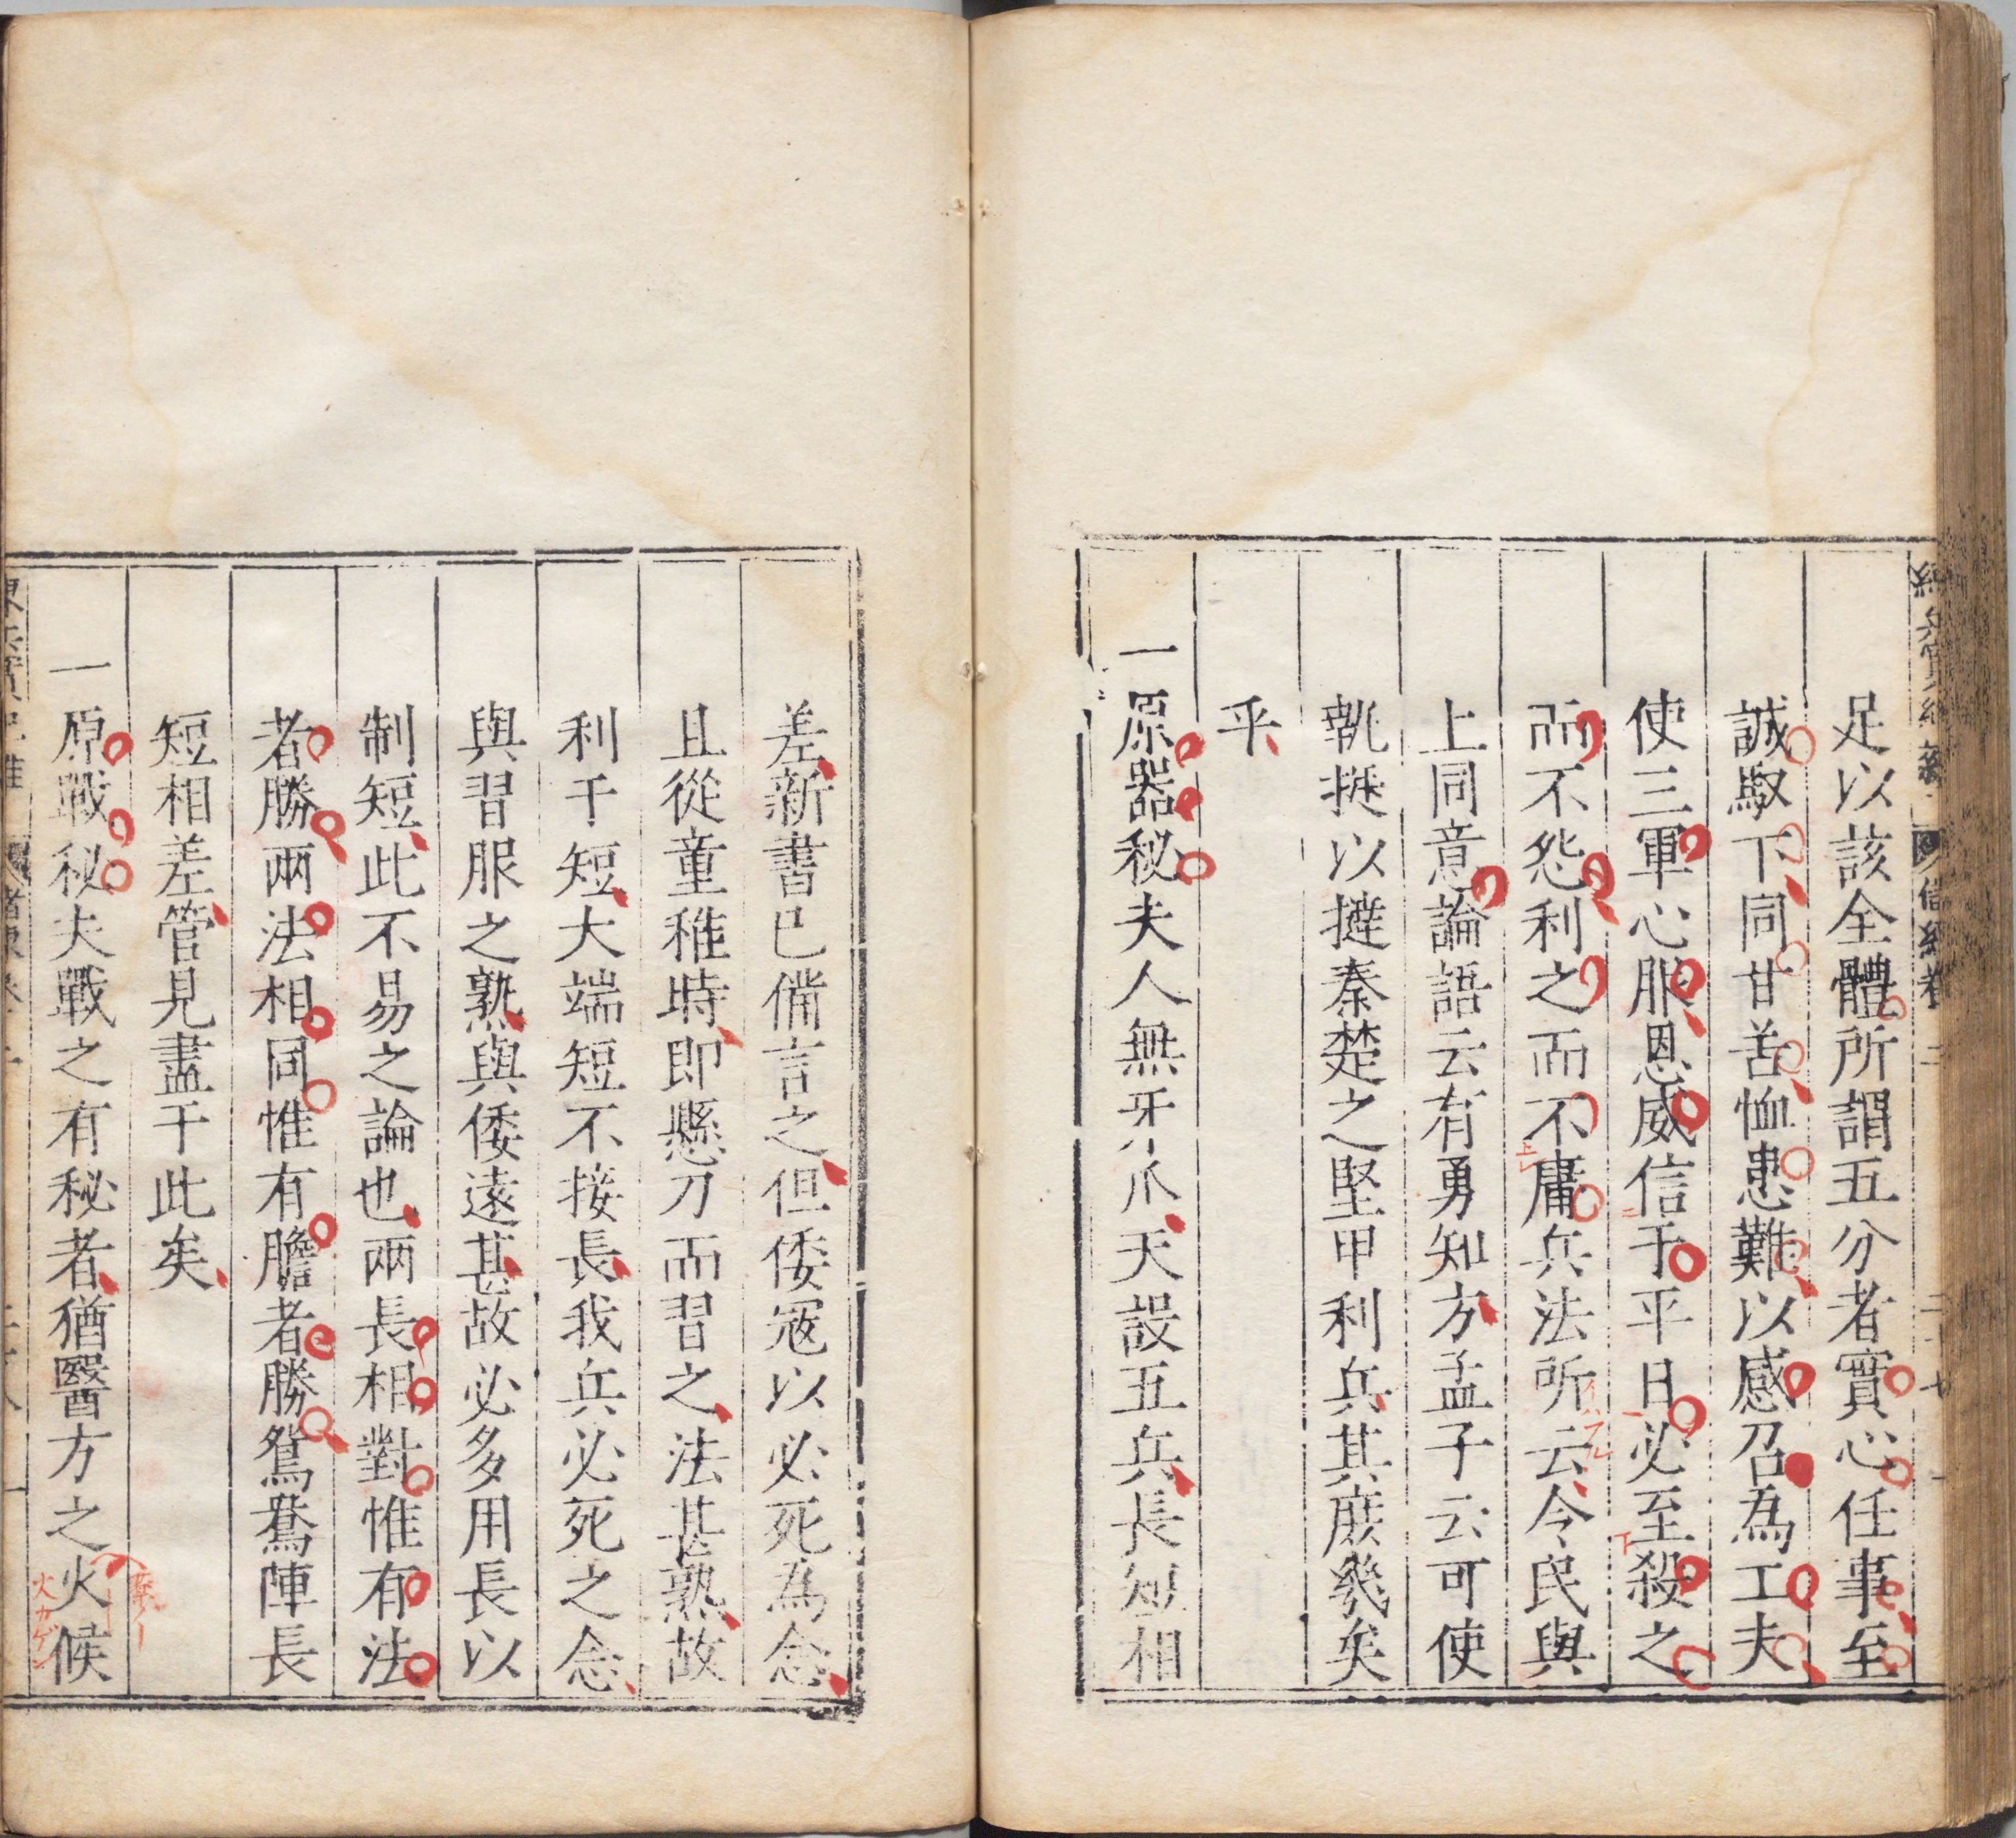 足以該全體所謂五分者實心任事至
誠馭下同甘苦恤患難以感召為工夫
使三軍心服恩威信于平日必至殺之
而不怨利之而不庸兵法所云今民與
上同意論語云有勇知方孟子云可使
執挺以撻秦楚之堅甲利兵其庶幾矣
乎
一原器秘夫人無牙爪天設五兵長短相
差新書已備言之但倭寇以必死為念
且從童稚時即懸刀而習之法甚熟故
利于短大端短不接長我兵必死之念
與習服之熟與倭遠甚故必多用長以
制短此不易之論也兩長相對惟有法
者勝兩法相同惟有膽者勝鴛鴦陣長
短相差管見盡于此矣
一原戰秘夫戰之有秘者猶醫方之火候
火カゲン